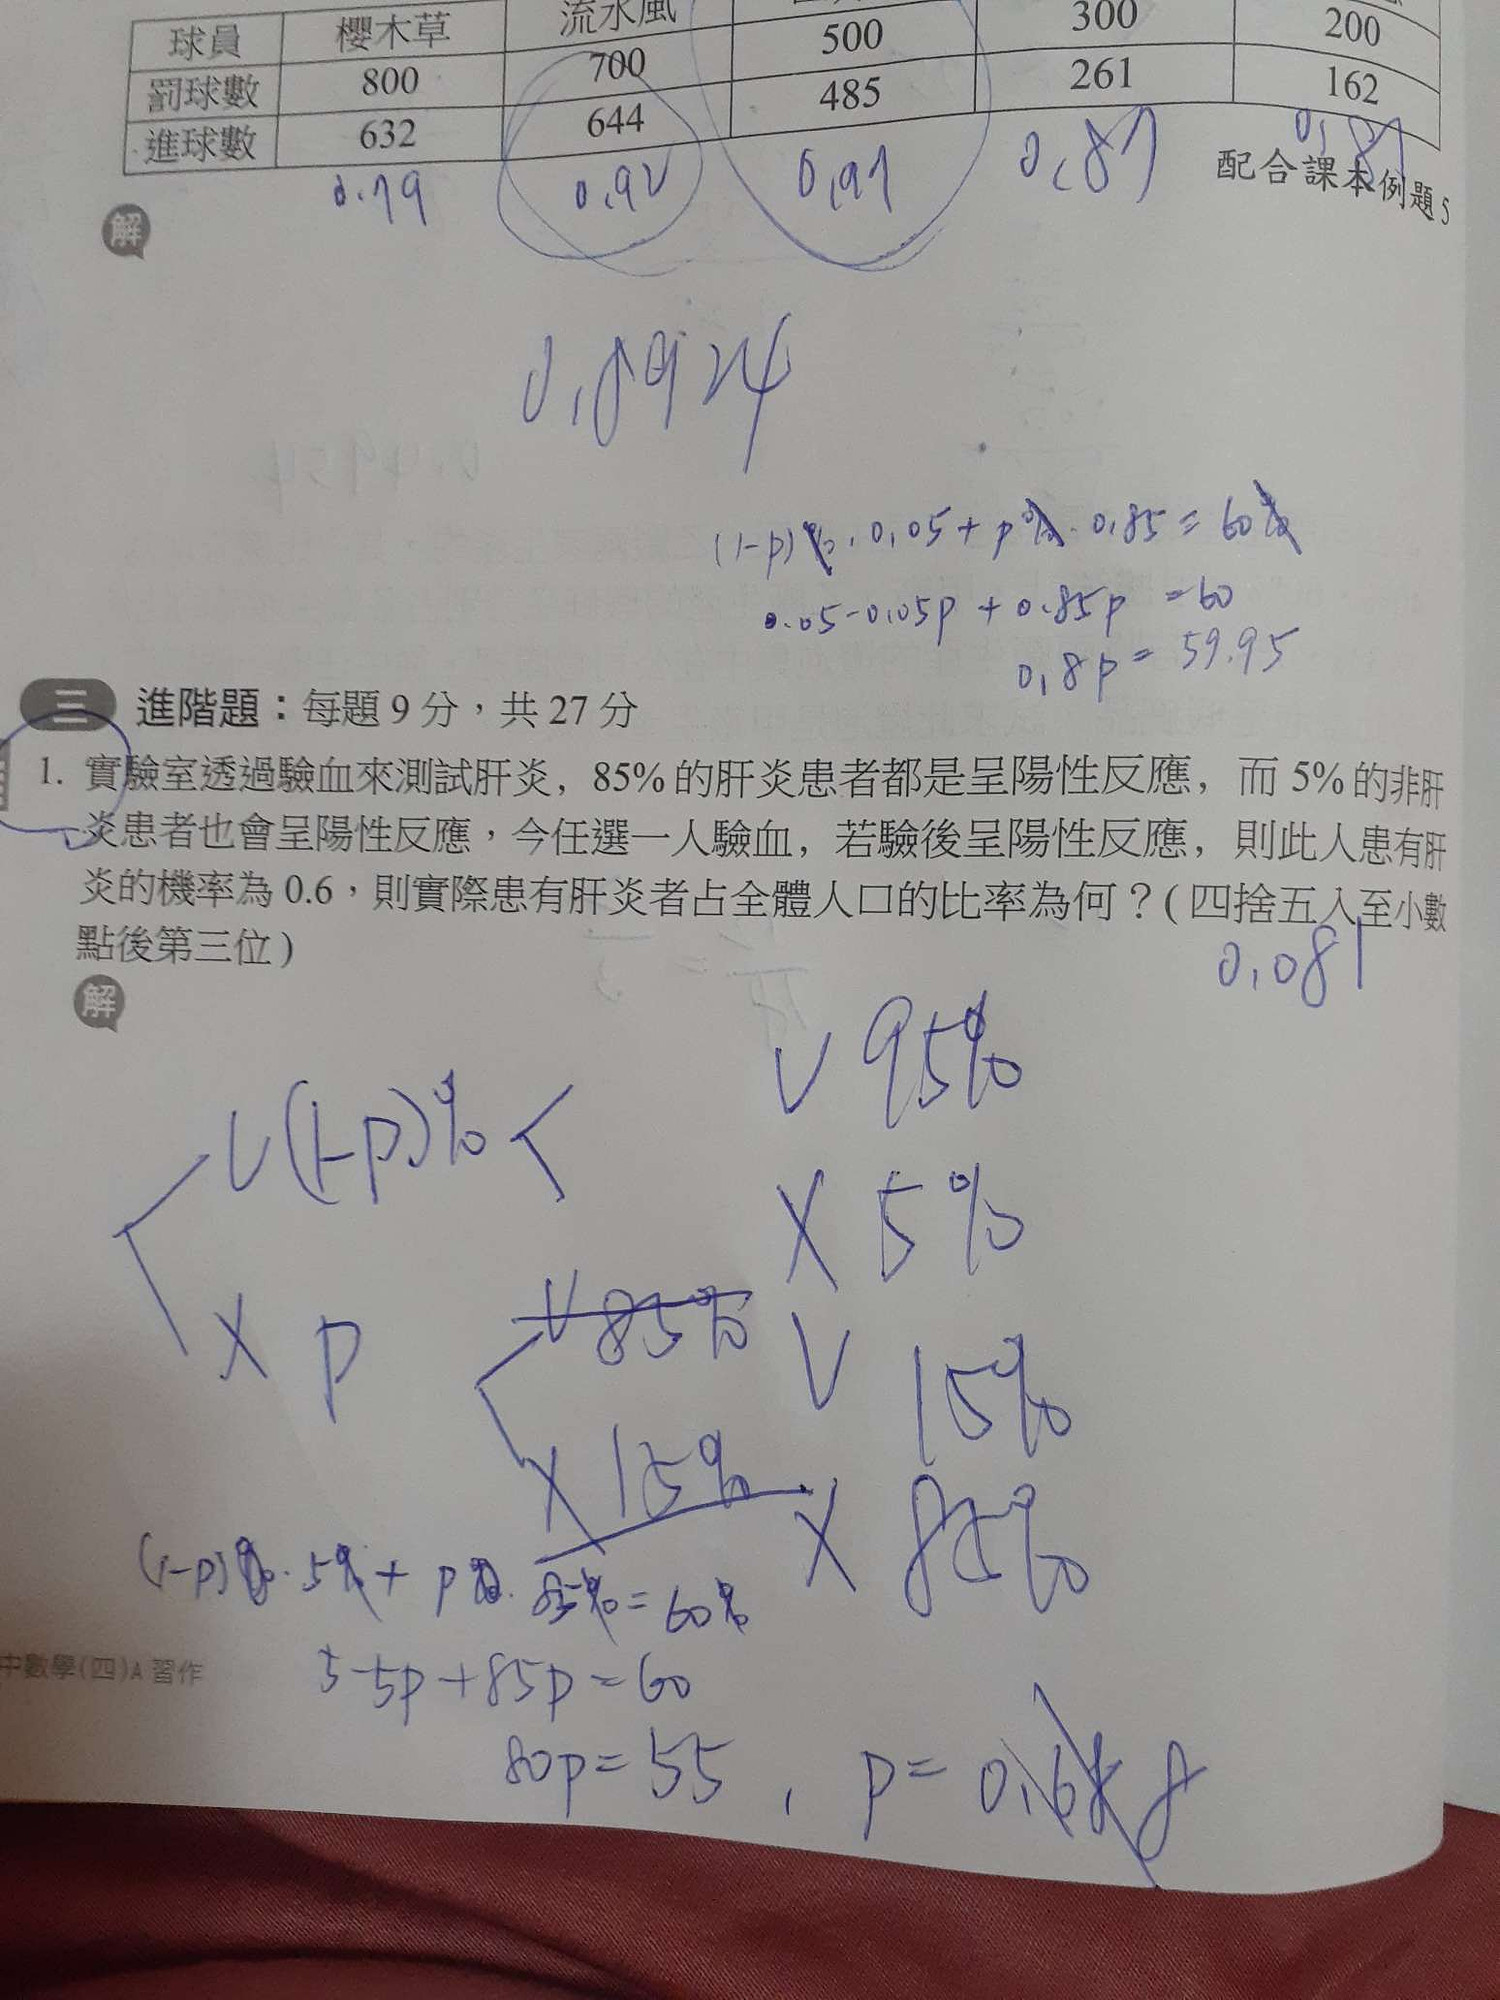 球員 櫻木草 流水風
罰球數 800 700 500 300 200
進球數 632 644 485 261 162
0.79 0.92 0.97 0.87 0.81
配合課本例題5
解
0.8924
(1-p)%·0.05+p%·0.85=60%
0.05-0.05p+0.85p=60
0.8p=59.95
三 進階題：每題9分，共27分
1. 實驗室透過驗血來測試肝炎，85%的肝炎患者都是呈陽性反應，而5%的非肝
炎患者也會呈陽性反應，今任選一人驗血，若驗後呈陽性反應，則此人患有肝
炎的機率為0.6，則實際患有肝炎者占全體人口的比率為何？(四捨五入至小數
點後第三位)
0.081
解
V 95%
V(1-p)% <
X 5%
V 85%
X p
V 15%
X 15%
X 85%
(1-p)%·5%+p%·85%=60%
5-5p+85p=60
80p=55，p=0.68
中數學(四)A習作